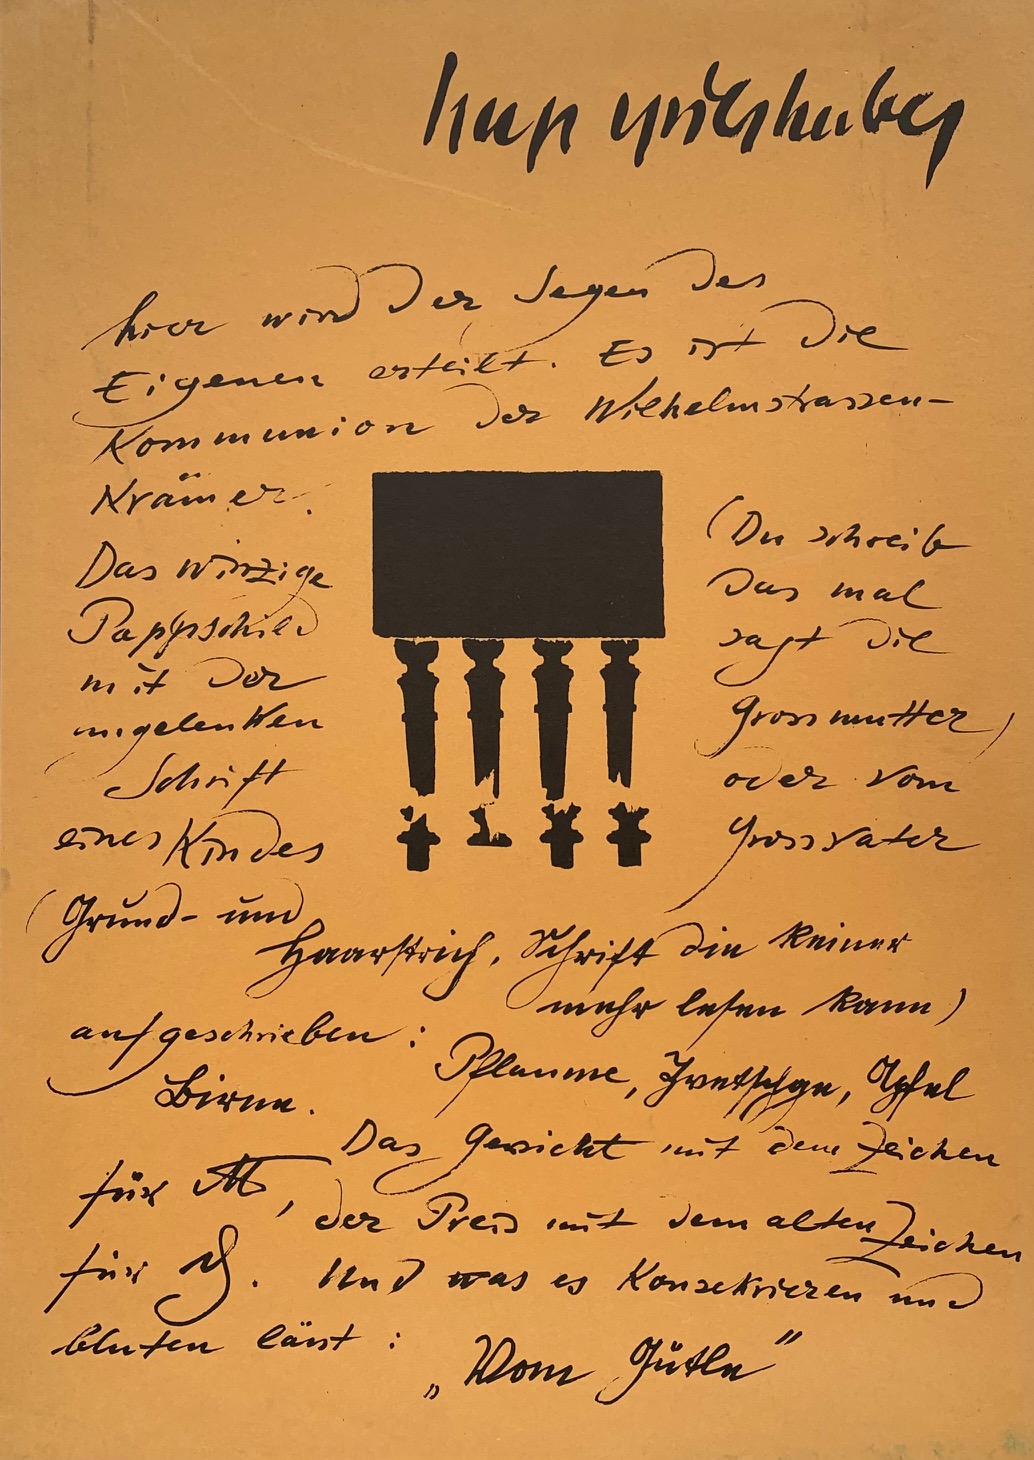 hap grieshaber
hier wird der Segen des
Eigenen erteilt. Es ist die
Kommunion der Wilhelmstrassen-
Krämer.
Das winzige
Pappschild
mit der
ungelenken
Schrift
eines Kindes
(Du schreib
das mal
sagt die
Grossmutter)
oder vom
Grossvater
(Grund- und
Haarstrich, Schrift die keiner
mehr lesen kann)
aufgeschrieben:
Pflaume, Zwetschge, Apfel
Birne.
Das Gewicht mit dem Zeichen
für ℔,
der Preis mit dem alten Zeichen
für ₰. Und was es Konsekrieren und
bluten lässt:
„Vom Gütle"